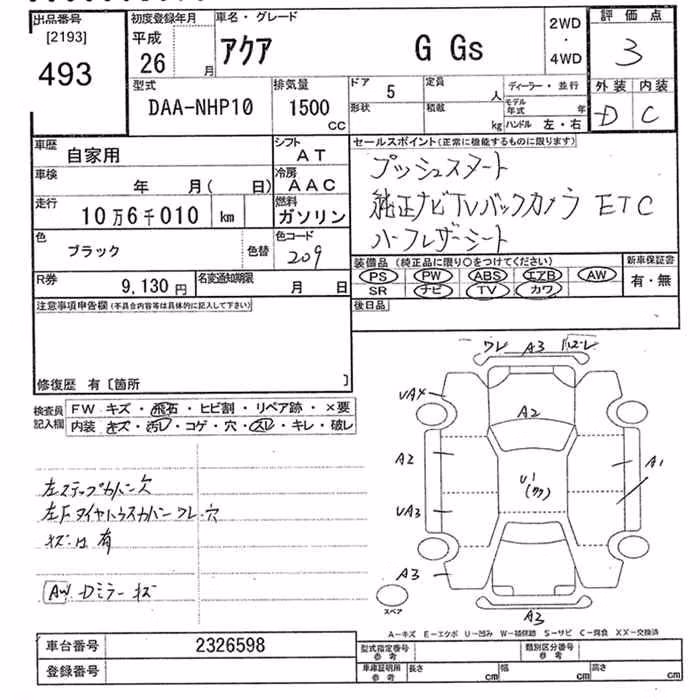 出品番号 初度登録年月 車名・グレード 評価点
[2193] 平成 アクア G Gs 2WD
493 26 月 ・ 4WD 3
型式 排気量 ドア 5 定員 人 ディーラー・並行 外装 内装
DAA-NHP10 1500 cc 形状 積載 kg モデル年式 年 D C
ハンドル 左・右
車歴 自家用 シフト AT セールスポイント(正常に機能するものに限ります)
車検 年 月( 日) 冷房 AAC プッシュスタート
走行 10万6千010 km 燃料 ガソリン 純正ナビTVバックカメラ ETC
色 ブラック 色替 色コード 209 ハーフレザーシート
装備品(純正品に限り○をつけてください) 新車保証書
R券 9,130円 名変通知期限 月 日 PS PW ABS エアB AW 有・無
SR ナビ TV カワ
注意事項申告欄(不具合内容等は具体的に記入して下さい) 後日品
修復歴 有〔箇所 〕
検査員記入欄 FW キズ・飛石・ヒビ割・リペア跡・×要
内装 キズ・汚レ・コゲ・穴・スレ・キレ・破レ
ワレ A3
UAX
A2
A2 A1
U1
UA3
A3
A3
スペア
左ステップカバー欠
左Fタイヤハウスカバーワレ・穴
有
AW Dミラーキズ
A-キズ E-エクボ U-凹み W-補修跡 S-サビ C-腐食 XX-交換済
車台番号 2326598 型式指定番号 参考 類別区分番号 参考
登録番号 車庫証明用 参考 長さ cm 幅 cm 高さ cm